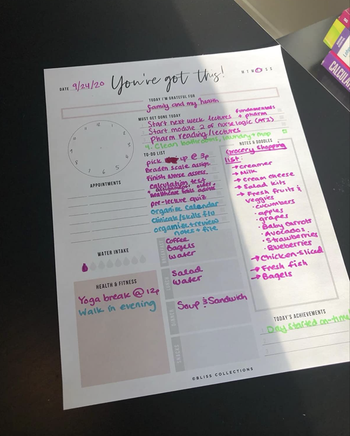 DATE 9/24/20
You've got this!
M T W T F S S
TODAY I'M GRATEFUL FOR
Family and my health
MUST GET DONE TODAY
Start next week lectures fundamentals + pharm
Start module 2 of nurselogic
Pharm reading/lectures
Clean bathroom, laundry + mop
TO-DO LIST
pick up @ 3p
Braden scale assign
Finish nurse assess.
calculation test
healthcare
pre-lecture quiz
organize calendar
clinicals/skills
organize + review
notes + file
APPOINTMENTS
12
NOTES & DOODLES
Grocery shopping
list:
→ creamer
→ Milk
→ cream cheese
→ Salad kits
→ Fresh fruits &
veggies
- cucumbers
- apples
- grapes
- Baby carrots
- Avocados
- Strawberries
- Blueberries
→ Chicken-Sliced
→ Fresh fish
→ Bagels
WATER INTAKE
Coffee
Bagels
Water
Salad
Water
Soup & Sandwich
HEALTH & FITNESS
Yoga break @ 12p
Walk in evening
TODAY'S ACHIEVEMENTS
Day started on-time
©BLISS COLLECTIONS